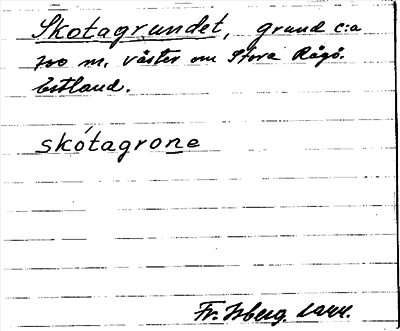 Skotagrundet, grund c:a
700 m. väster om Stora Rågö.
Estland.
skótagrone
Fr. Isberg